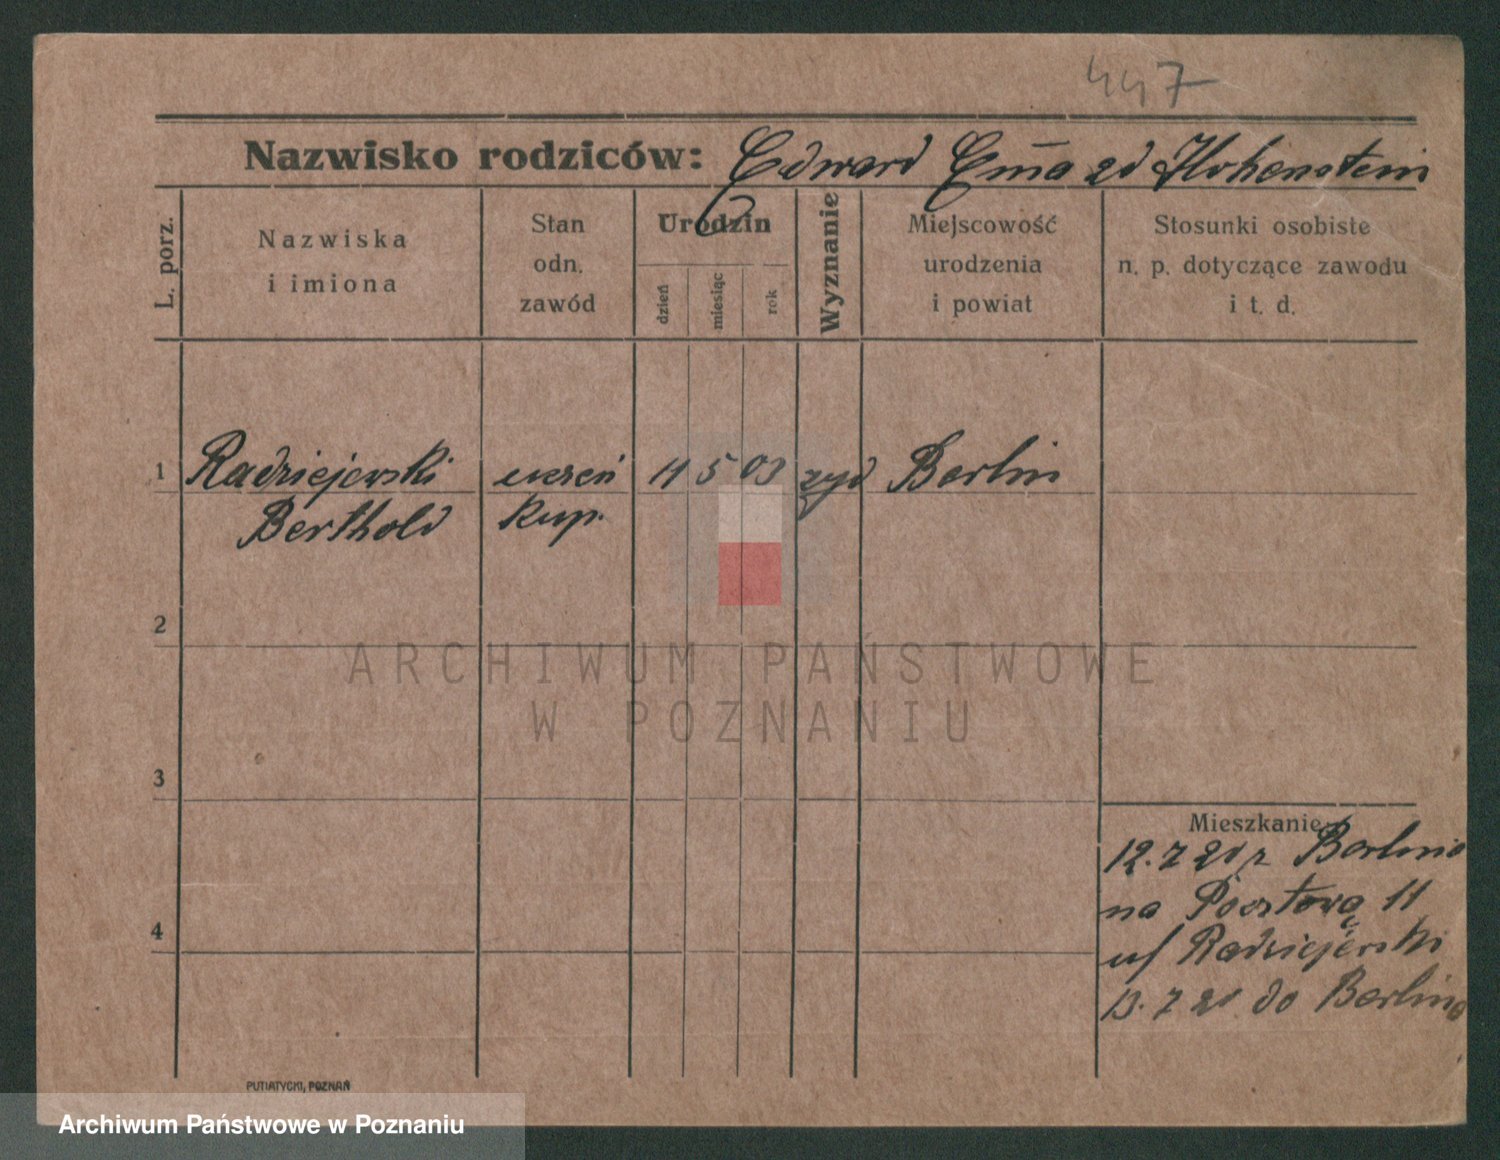 447
Nazwisko rodziców: Edward Em̄a zd Hohenstein
L. porz.
Nazwiska
i imiona
Stan
odn.
zawód
Urodzin
dzień
miesiąc
rok
Wyznanie
Miejscowość
urodzenia
i powiat
Stosunki osobiste
n. p. dotyczące zawodu
i t. d.
1 Radziejewski uczeń 11 5 03 żyd Berlin
Berthold kup.
2
ARCHIWUM PAŃSTWOWE
W POZNANIU
3
Mieszkanie
12.7 21 z Berlina
na Pocztową 11
u/ Radziejewski
4
13.7 21 do Berlina
PUTIATYCKI, POZNAŃ
Archiwum Państwowe w Poznaniu